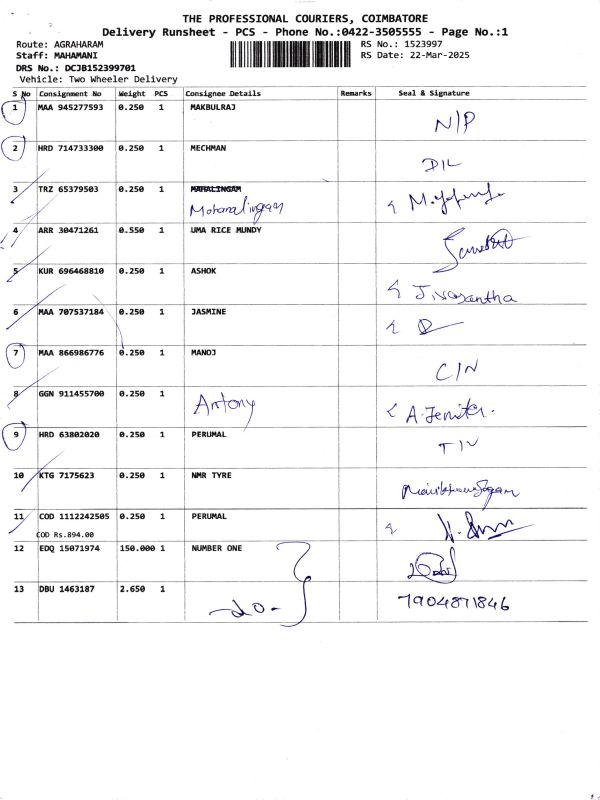 THE PROFESSIONAL COURIERS, COIMBATORE
Delivery Runsheet - PCS - Phone No.:0422-3505555 - Page No.:1
Route: AGRAHARAM RS No.: 1523997
Staff: MAHAMANI RS Date: 22-Mar-2025
DRS No.: DCJB152399701
Vehicle: Two Wheeler Delivery
S No Consignment No Weight PCS Consignee Details Remarks Seal & Signature
1 MAA 945277593 0.250 1 MAKBULRAJ N/P
2 HRD 714733300 0.250 1 MECHMAN D/L
3 TRZ 65379503 0.250 1 MAHALINGAM
Mohanalingam
4 ARR 30471261 0.550 1 UMA RICE MUNDY
5 KUR 696468810 0.250 1 ASHOK J. Vasantha
6 MAA 707537184 0.250 1 JASMINE
7 MAA 866986776 0.250 1 MANOJ C/N
8 GGN 911455700 0.250 1 Antony A. Jenifer.
9 HRD 63802020 0.250 1 PERUMAL
10 KTG 7175623 0.250 1 NMR TYRE
11 COD 1112242505 0.250 1 PERUMAL
COD Rs.894.00
12 EDQ 15071974 150.000 1 NUMBER ONE
13 DBU 1463187 2.650 1 -do- 7904871846